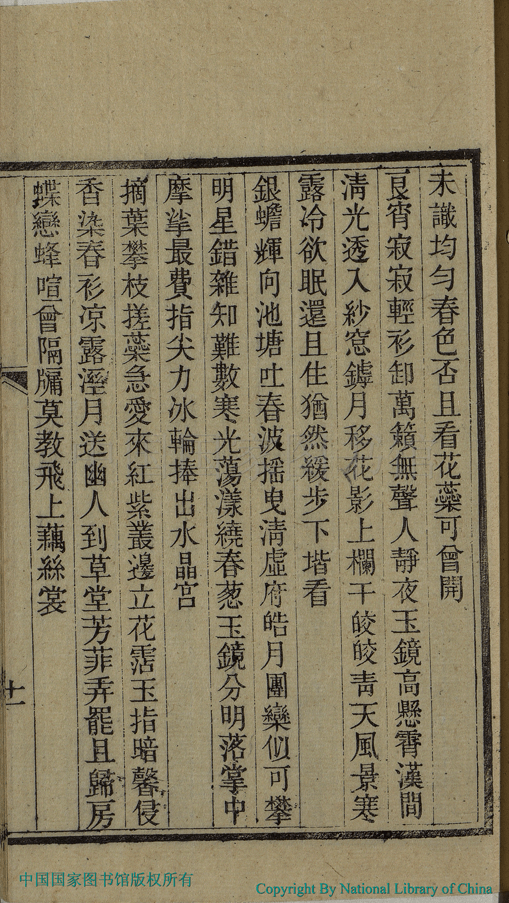 未識均勻春色否且看花蘂可曾開
良宵寂寂輕衫卸萬籟無聲人靜夜玉鏡高懸霄漢間
淸光透入紗窓罅月移花影上欄干皎皎靑天風景寒
露冷欲眠還且住猶然緩步下堦看
銀蟾輝向池塘吐春波搖曳淸虛府皓月團欒似可攀
明星錯雜知難數寒光蕩漾繞春葱玉鏡分明落掌中
摩挲最費指尖力冰輪捧出水晶宮
摘葉攀枝搓蘂急愛來紅紫叢邊立花霑玉指暗馨侵
香染春衫凉露溼月送幽人到草堂芳菲弄罷且歸房
蝶戀蜂喧曾隔牖莫教飛上藕絲裳
十一
中国国家图书馆版权所有
Copyright By National Library of China